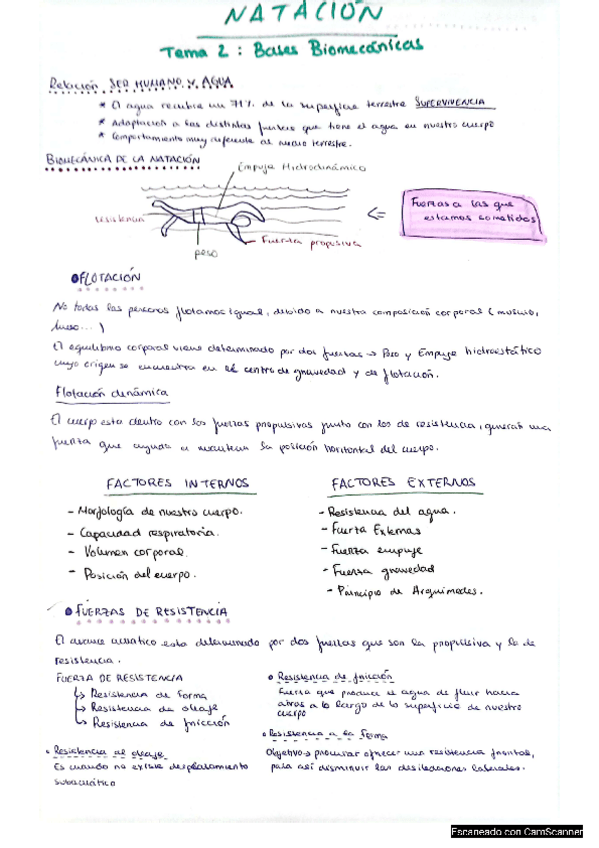 NATACIÓN
Tema 2: Bases Biomecánicas
Relación SER HUMANO Y AGUA
* El agua recubre un 71% de la superficie terrestre SUPERVIVENCIA
* Adaptación a las distintas fuerzas que tiene el agua en nuestro cuerpo
* Comportamiento muy diferente al medio terrestre.
BIOMECÁNICA DE LA NATACIÓN
Empuje Hidrodinámico
resistencia
peso
Fuerza propulsiva
Fuerzas a las que
estamos sometidos
FLOTACIÓN
No todas las personas flotamos igual, debido a nuestra composición corporal (músculo,
hueso...)
El equilibrio corporal viene determinado por dos fuerzas → Peso y Empuje hidroestático
cuyo origen se encuentra en el centro de gravedad y de flotación.
Flotación dinámica
El cuerpo esta dentro con las fuerzas propulsivas junto con las de resistencia, generan una
fuerza que ayuda a mantener la posición horizontal del cuerpo.
FACTORES INTERNOS
- Morfología de nuestro cuerpo.
- Capacidad respiratoria.
- Volumen corporal.
- Posición del cuerpo.
FACTORES EXTERNOS
- Resistencia del agua.
- Fuerza Externas
- Fuerza empuje
- Fuerza gravedad
- Principio de Arquímedes.
FUERZAS DE RESISTENCIA
El avance acuático esta determinado por dos fuerzas que son la propulsiva y la de
resistencia.
FUERZA DE RESISTENCIA
↳ Resistencia de forma
↳ Resistencia de oleaje
↳ Resistencia de fricción
Resistencia al oleaje
Es cuando no existe desplazamiento
subacuático
Resistencia de fricción
Fuerza que produce el agua de fluir hacia
atras a lo largo de la superficie de nuestro
cuerpo
Resistencia a la forma
Objetivo → procurar ofrecer una resistencia frontal,
para así disminuir las oscilaciones laterales.
Escaneado con CamScanner